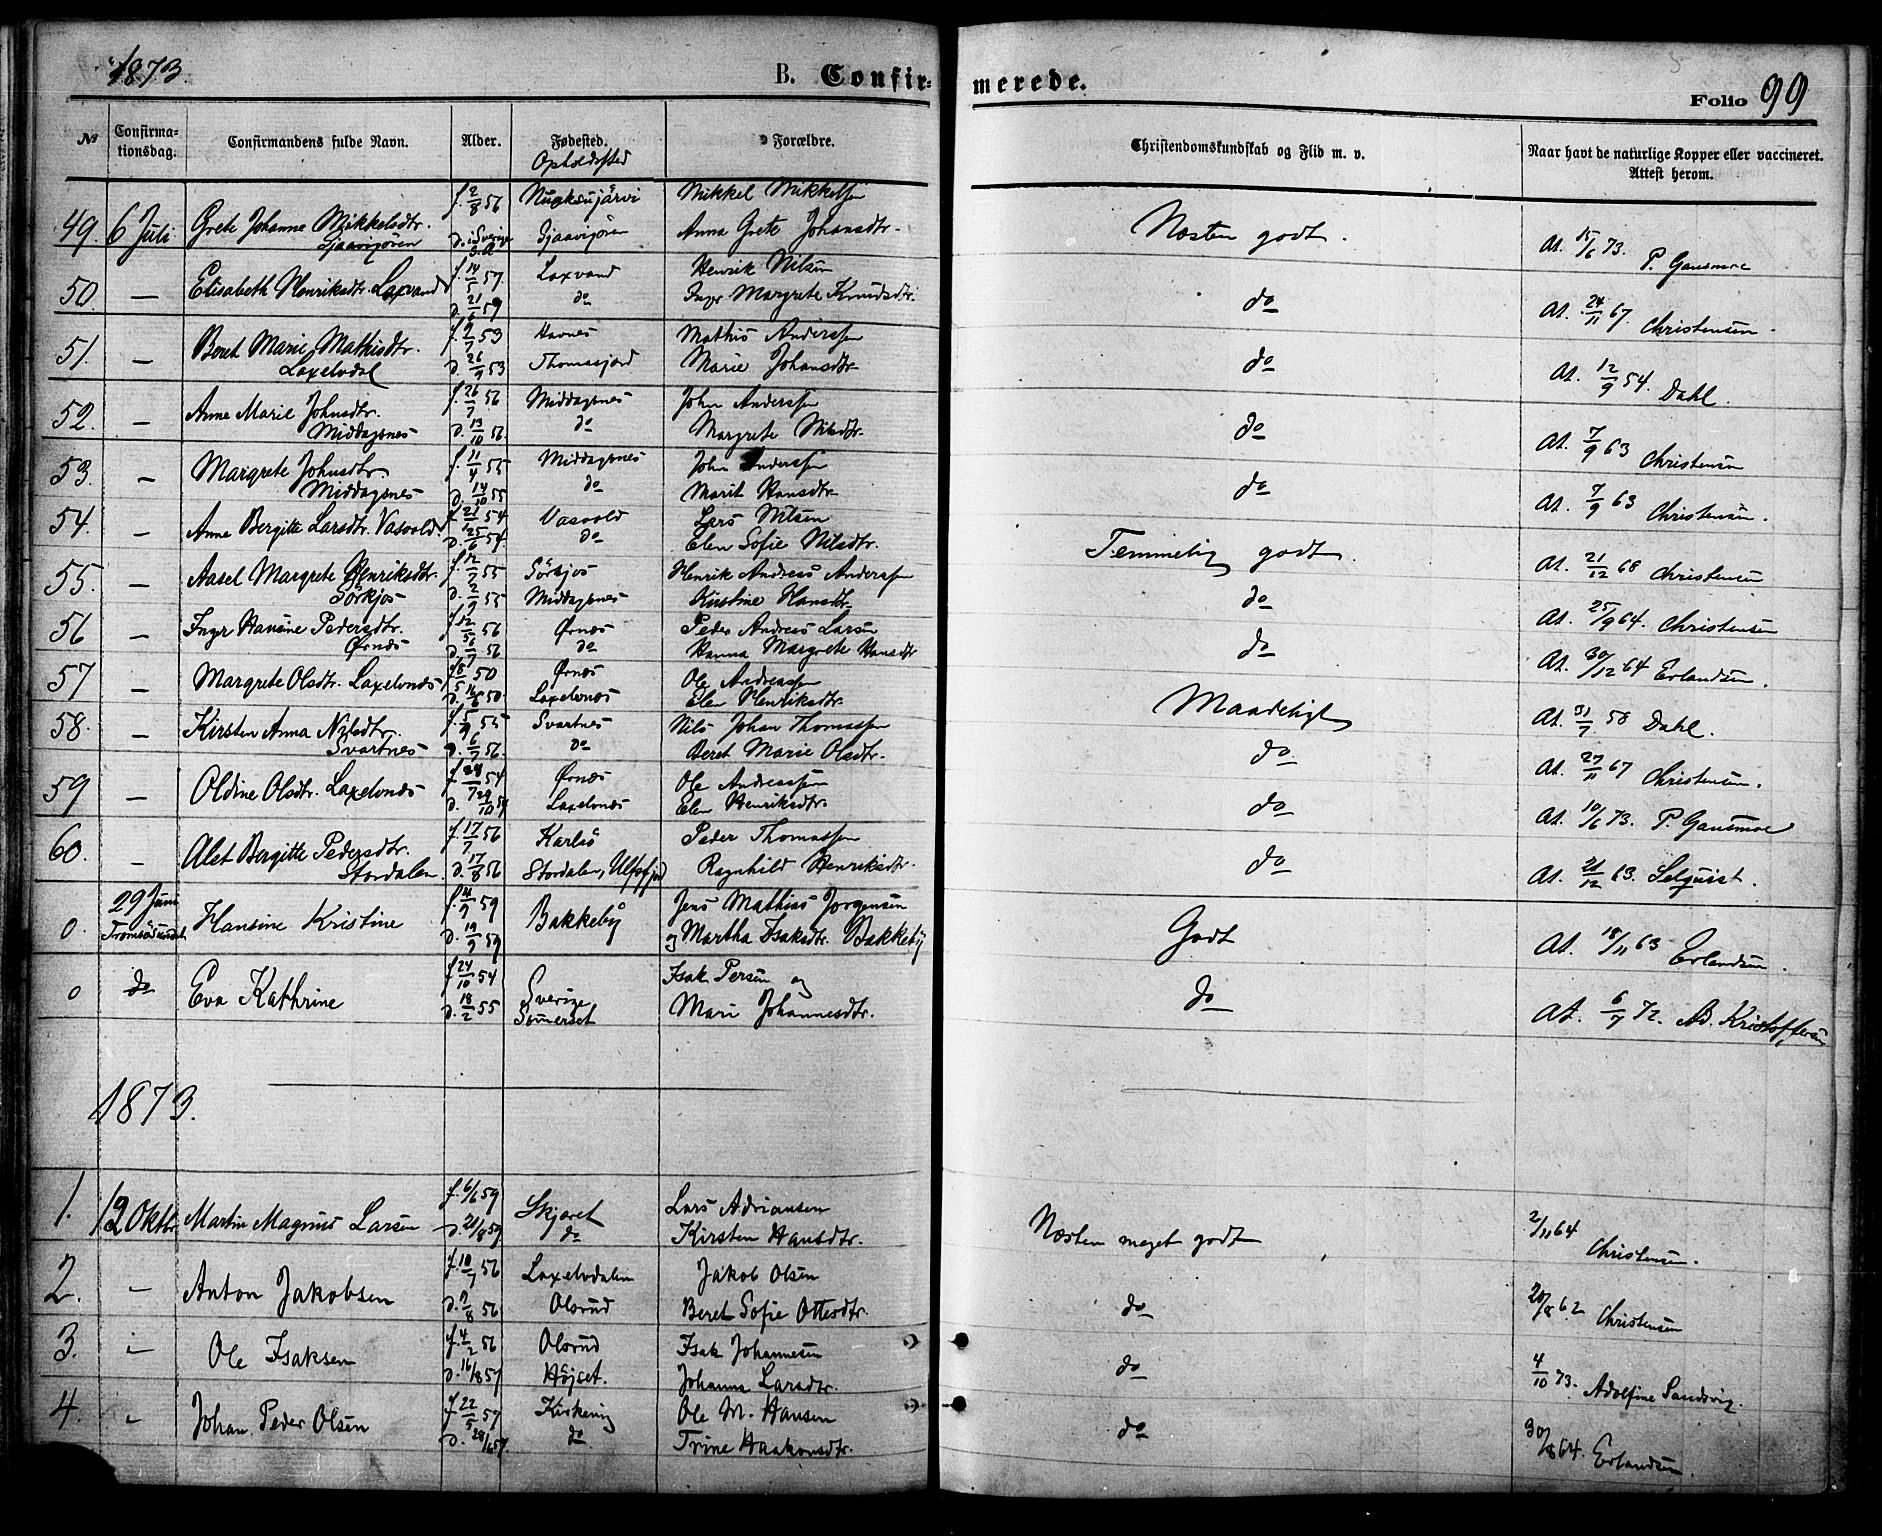 1873.
B. Confir-
merede.
Folio 99
No
Confirma-
tionsdag.
Confirmandens fulde Navn.
Alder.
Fødested.
Opholdssted
Forældre.
Christendomskundskab og Flid m. v.
Naar havt de naturlige Kopper eller vaccineret.
Attest herom.
49. 6 Juli Grete Johanne Mikkelsdtr. f. 2/8 56 Mikkel Mikkelsen
d. i Sverige Anna Grete Johansdtr. Næsten godt. At. 15/6 73. P. Gansmoe
50. — Elisabeth Henriksdtr. Laxvand f. 14/5 57. Laxvand Henrik Nilsen
d. 21/6 59 do Inger Margrete Knudsdtr. do At. 24/11 67. Christensen.
51. — Beret Marie Mathisdtr. f. 9/7 53 Havnes Mathis Anderssen
Laxelvdal d. 26/9 53 Thomasjord Marie Johansdtr. do At. 12/9 54. Dahl.
52. — Anne Marie Johnsdtr. f. 26/7 56 Middagsnes John Anderssen
Middagsnes d. 13/10 56. do Margrete Nilsdtr. do At. 7/9 63 Christensen
53. — Margrete Johnsdtr. f. 11/4 55 Middagsnes John Anderssen
Middagsnes d. 14/10 55 do Marit Hansdtr. do At. 7/9 63 Christensen.
54. — Anne Bergitte Larsdtr. Vasvold f. 21/1 54 Vasvold Lars Nilsen
d. 25/6 54. do Elen Sofie Nilsdtr. Temmelig godt. At. 21/12 68 Christensen
55. — Aasel Margrete Henriksdtr. f. 12/7 55 Sørkjos Henrik Andreas Anderssen
Sørkjos d. 2/9 55 Middagsnes Kirstine Hansdtr. do At. 25/9 64. Christensen
56 — Inger Hansine Pedersdtr. f. 12/5 56 Ørnes Peder Andreas Larsen
Ørnes d. 6/7 56 do Hanna Margrete Hansdtr do At. 30/12 64 Erlandsen.
57 — Margrete Olsdtr. Laxelvnes f. 8/5 50 Ørnes Ole Andreassen
d. 16/6 50. Laxelvnes Elen Henriksdtr. Maadeligt At. 31/7 58 Dahl.
58. — Kirsten Anna Nilsdtr. f. 5/9 55 Svartnes Nils Johan Thomassen
Svartnes d. 6/7 56. do Beret Marie Olsdtr. do At. 27/11 67 Christensen.
59 — Oldine Olsdtr. Laxelvnes f. 28/7 54 Ørnes Ole Andreassen
d. 29/10 54 Laxelvnes Elen Henriksdtr. do At. 10/6 73. P. Gansmoe
60. — Alet Bergitte Pedersdtr. f. 17/7 56 Karlsö Peder Thomassen
Stordalen d. 17/8 56 Stordalen, Ulfsfjord Ragnhild Henriksdtr. do At. 21/12 63. Selquist.
0. 29 Juni Hansine Kristine f. 4/9 59 Bakkeby Jens Mathias Jørgensen
Tromsösundet d. 19/9 59 og Martha Isaksdtr. Bakkeby Godt At. 18/11 63 Erlandsen.
0 do Eva Kathrine f. 24/10 54 Sverige Isak Persen og
d. 18/2 55 Sommerset Mari Johannesdtr. do At. 6/7 72. Ad. Kristoffersen
1873.
1. 12 Oktbr. Martin Magnus Larsen f. 6/6 59 Skjæret Lars Adriansen
d. 20/8 59 do Kirsten Hansdtr. Næsten meget godt 2/11 64 Christensen.
2. " Anton Jakobsen f. 10/7 56 Laxelvdalen Jakob Olsen
d. 9/8 56 Olsrud Beret Sofie Ottesdtr. do 20/8 62 Christensen
3. " Ole Isaksen f. 4/2 56 Olsrud Isak Johannesen
d. 16/8 57 Højset. Johanna Larsdtr. do 4/10 73. Adolfine Sandvig.
4. " Johan Peder Olsen f. 22/5 57 Kirkevig Ole M. Hansen
d. 28/6 57. do Trine Haakonsdtr. do 30/8 64. Erlandsen.